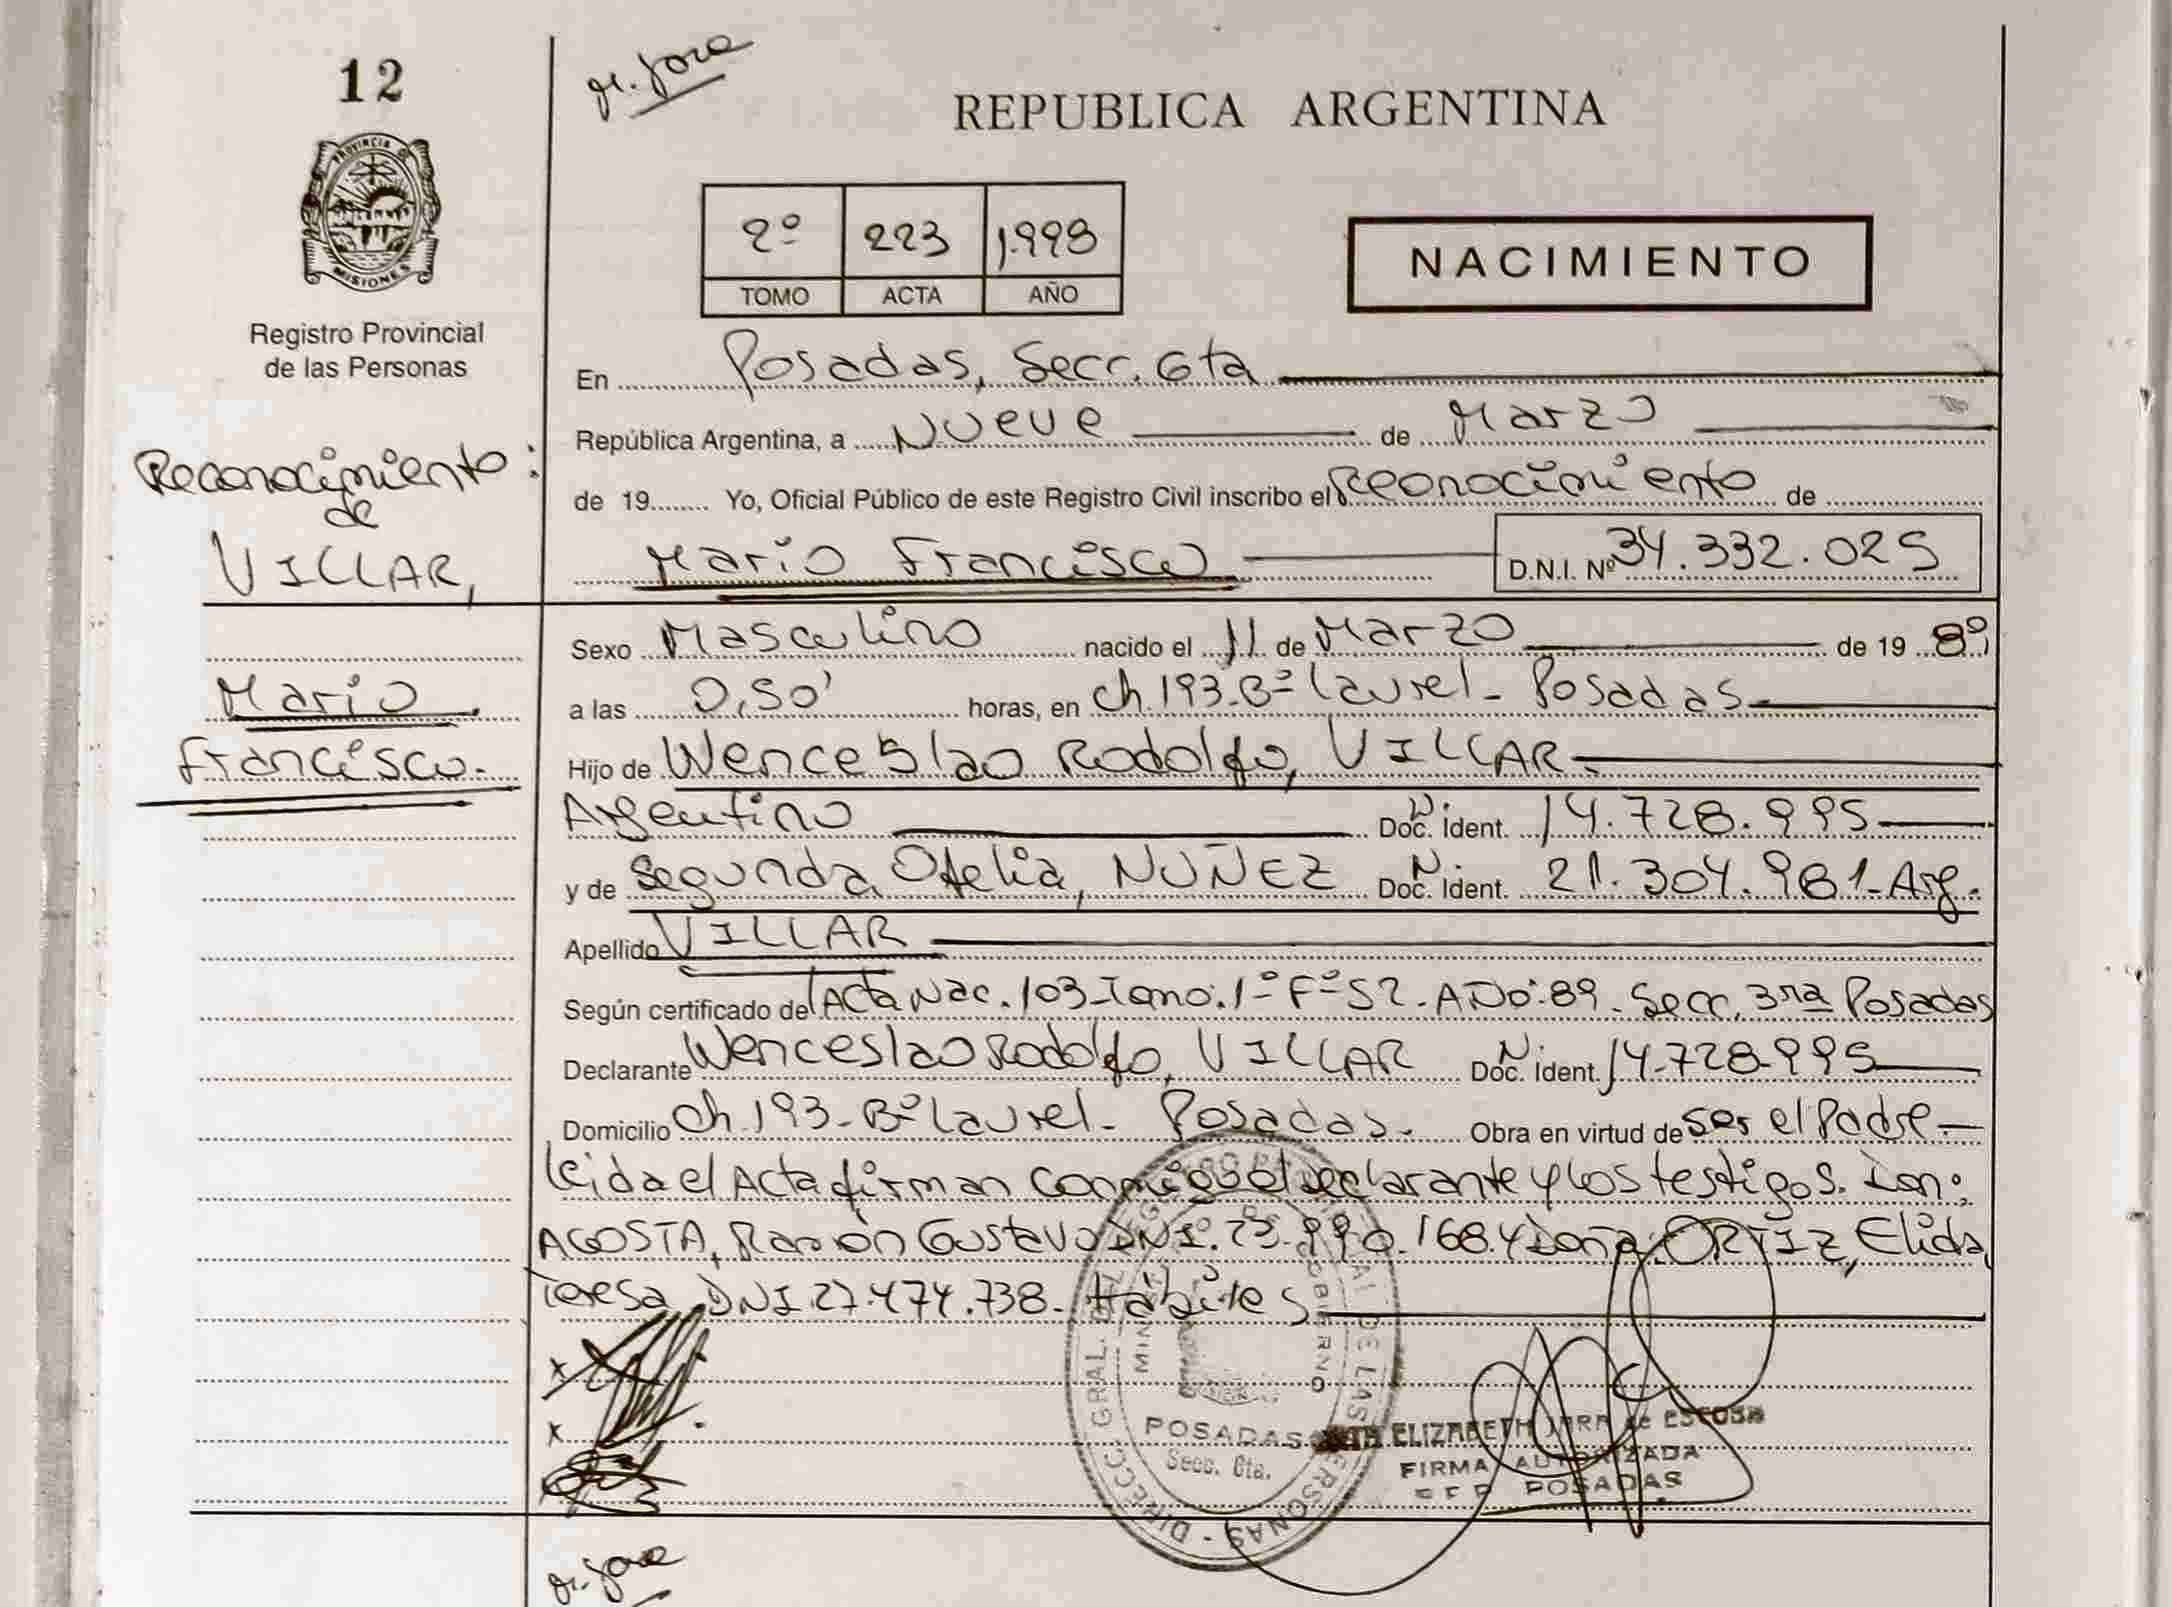 12
REPUBLICA ARGENTINA
PROVINCIA DE
MISIONES
Registro Provincial
de las Personas
2º 223 1.998
TOMO ACTA AÑO
NACIMIENTO
En Posadas, Secc. 6ta
República Argentina, a Nueve de Marzo
de 19 Yo, Oficial Público de este Registro Civil inscribo el Reonocimiento de
Mario Francisco D.N.I. Nº 34.332.025
Reconocimiento:
de
VILLAR,
Mario
Francisco.
Sexo Masculino nacido el 11 de Marzo de 19 89
a las 0,50' horas, en Ch. 193-Bº Laurel - Posadas
Hijo de Wenceslao Rodolfo, VILLAR
Argentino Doc. Ident. 14.728.995
y de Segunda Ofelia, NUÑEZ Doc. Ident. 21.304.981-Arg.
Apellido VILLAR
Según certificado de Acta Nac. 103-Tomo: 1º Fº 52. Año: 89. Secc. 3ra Posadas
Declarante Wenceslao Rodolfo, VILLAR Doc. Ident. 14.728.995
Domicilio Ch. 193-Bº Laurel - Posadas. Obra en virtud de ser el Padre
leida el Acta firman conmigo el declarante y los testigos. Don:
AGOSTA, Ramón Gustavo DNI. 23.990.168 y Doña: ORTIZ, Elida
Teresa DNI. 27.474.738. Hábiles
x
x
DIRECC. GRAL. DEL REGISTRO PROVINCIAL DE LAS PERSONAS
MINIST. DE GOBIERNO
POSADAS
Secc. 6ta.
ELIZABETH JARA de ESCOBAR
FIRMA AUTORIZADA
POSADAS